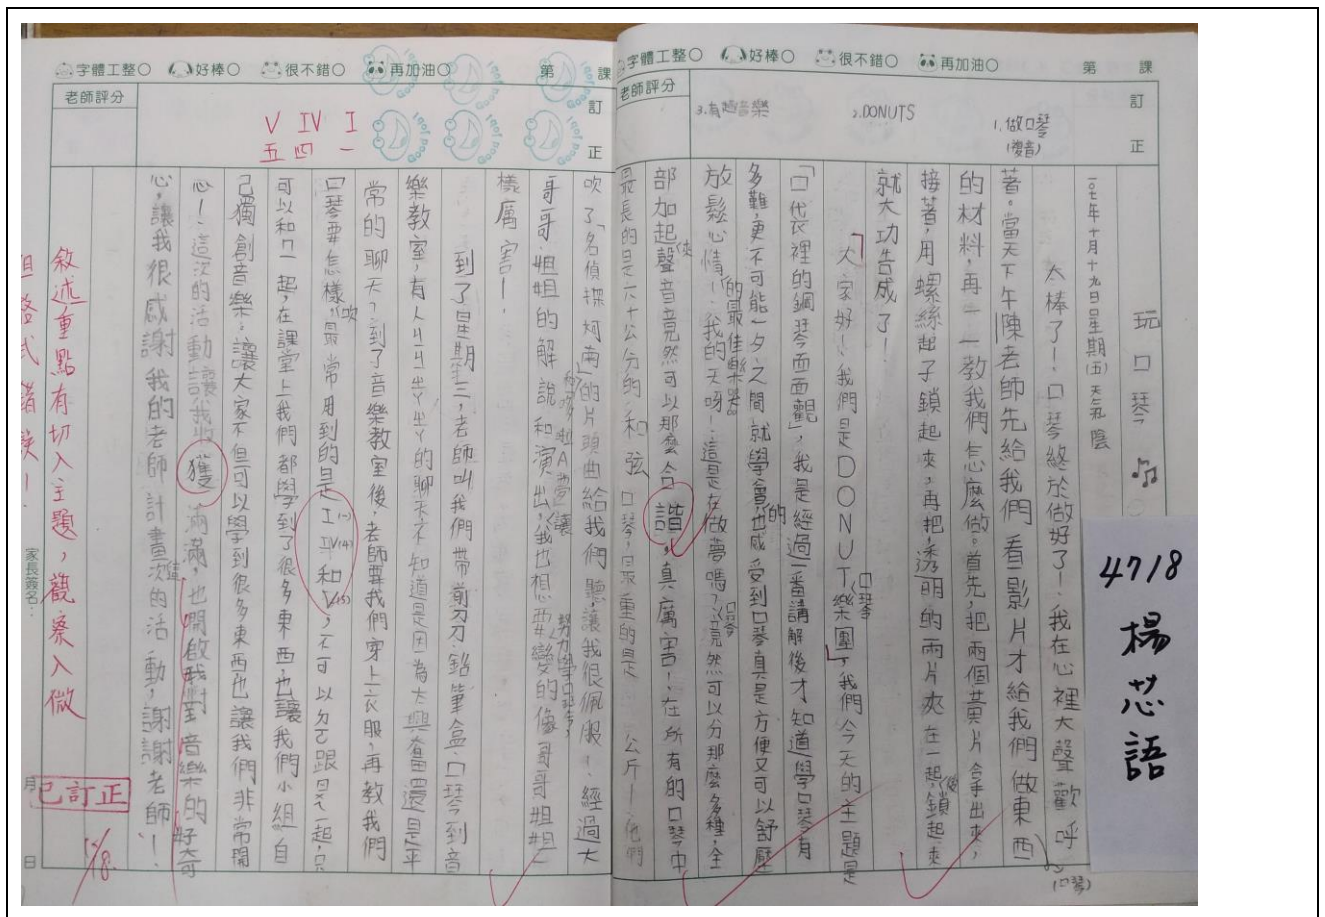 字體工整○ 好棒○ 很不錯○ 再加油○ 第 課
老師評分
訂正
3.有趣音樂
2.DONUTS
1.做口琴
(複音)
4718 楊芯語
玩口琴
一○七年十月十九日星期(五) 天氣陰
太棒了!口琴終於做好了!我在心裡大聲歡呼
著。當天下午陳老師先給我們看影片才給我們做東西
(口琴)
的材料,再一一教我們怎麼做。首先,把兩個黃片拿出來,
接著,用螺絲起子鎖起來,再把透明的兩片夾在一起,後鎖起來
就大功告成了!
「大家好!我們是DONUT口琴樂團」,我們今天的主題是
「口代衣裡的鋼琴面面觀」,我是經過一番講解後才知道學口琴有
多難,更不可能一夕之間就學會的,也感受到口琴真是方便又可以舒壓
放鬆心情的最佳樂器!我的天呀!這是在做夢嗎?口琴竟然可以分那麼多種,全
部加起來聲音竟然可以那麼合諧,真厲害!在所有的口琴中
最長的是六十公分的和弦口琴,最重的是 公斤!他們
字體工整○ 好棒○ 很不錯○ 再加油○ 第 課
老師評分
訂正
Good job!
I 一
IV 四
V 五
吹了「名偵探柯南」和哆啦A夢的片頭曲給我們聽,讓我很佩服!經過大
哥哥、姐姐的解說和演出,讓我也想要努力學口琴,變的像哥哥姐姐一
樣厲害!
到了星期三,老師叫我們帶剪刀、鉛筆盒、口琴到音
樂教室,有人ㄐㄐㄓㄚㄓㄚ的聊天,不知道是因為太興奮還是平
常的聊天?到了音樂教室後,老師要我們穿上衣服,再教我們
口琴要怎樣吹,最常用到的是I(一)IV(4)和V(5),不可以ㄅ跟ㄕ一起,只
可以和ㄇ一起,在課堂上我們都學到了很多東西也讓我們小組自
己獨創音樂,讓大家不但可以學到很多東西也讓我們非常開
心!這次的活動讓我收獲滿滿,也開啟我對音樂的好奇
心,讓我很感謝我的老師計畫這次的活動,謝謝老師!
敘述重點有切入主題,觀察入微
家長簽名:
月 日
已訂正